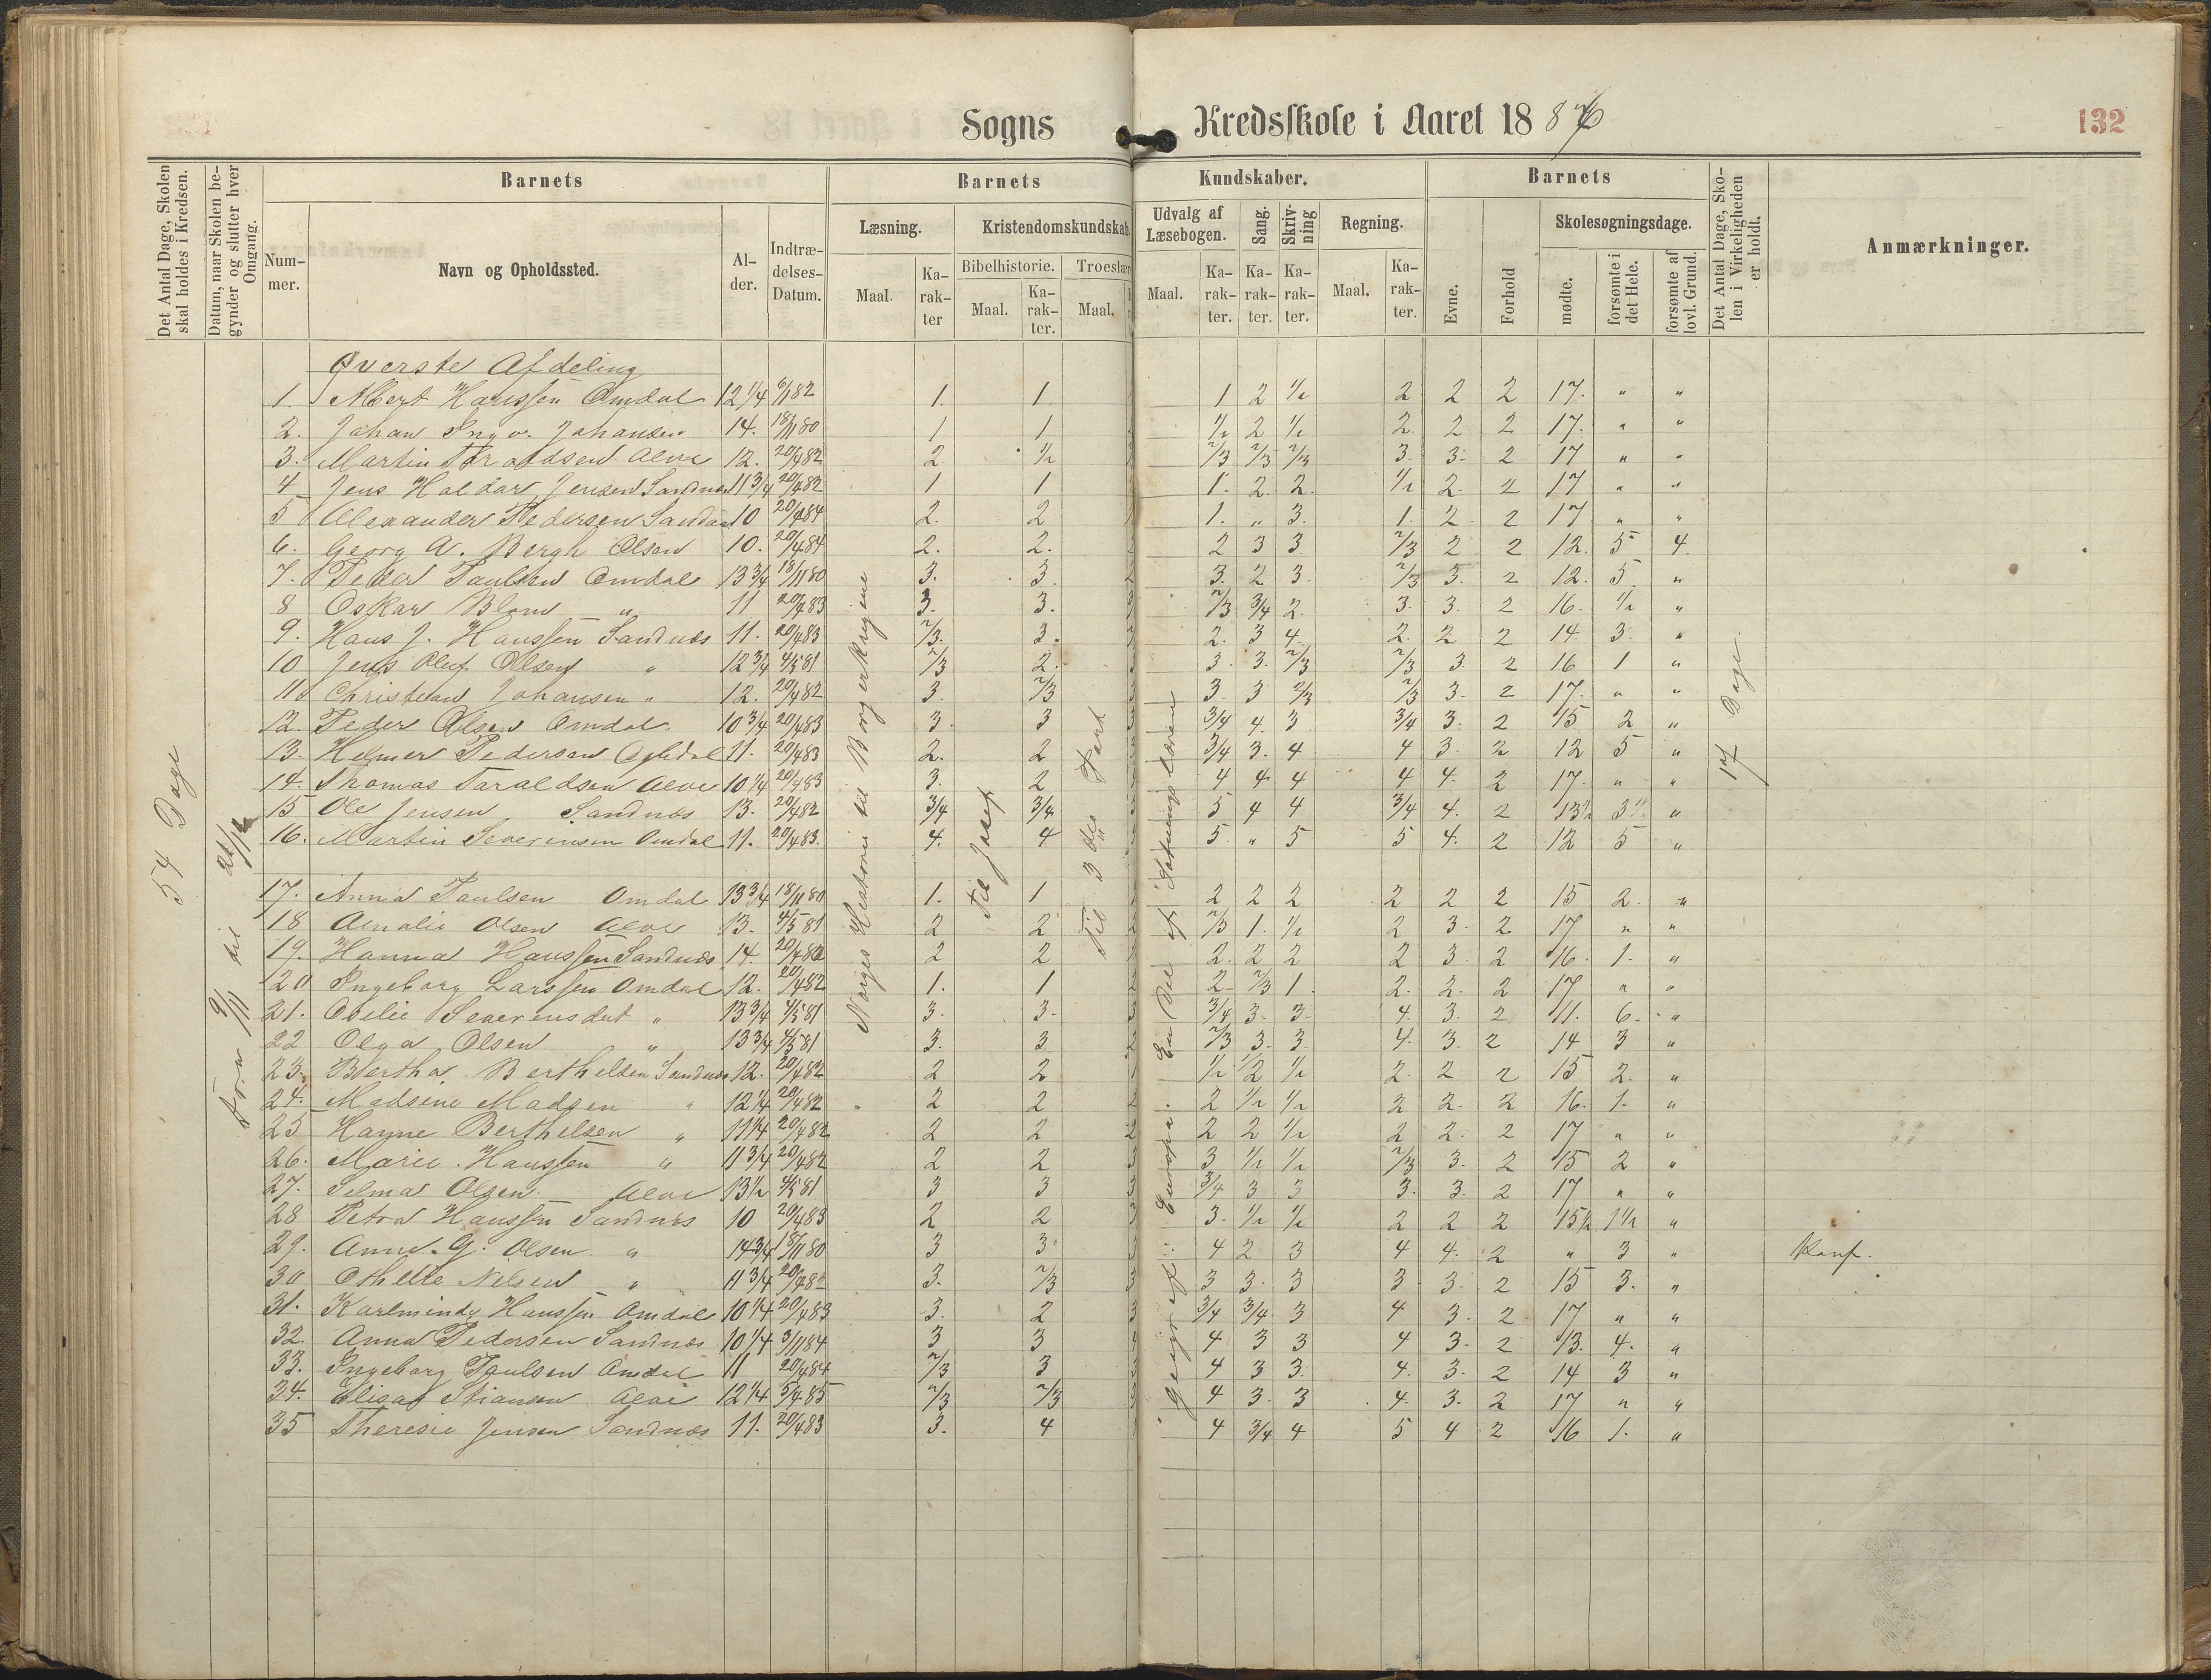 Sogns Kredsskole i Aaret 1886
132
Det Antal Dage, Skolen skal holdes i Kredsen.
Datum, naar Skolen begynder og slutter hver Omgang.
Barnets
Nummer.
Navn og Opholdssted.
Alder.
Indtrædelses-Datum.
Barnets Kundskaber.
Læsning.
Maal.
Karakter
Kristendomskundskab.
Bibelhistorie.
Maal.
Karakter.
Troeslær
Maal.
Udvalg af Læsebogen.
Maal.
Karakter.
Sang.
Karakter.
Skrivning
Karakter.
Regning.
Maal.
Karakter.
Barnets
Evne.
Forhold
Skolesøgningsdage.
mødte.
forsømte i det Hele.
forsømte af lovl. Grund.
Det Antal Dage, Skolen i Virkeligheden er holdt.
Anmærkninger.
54 Dage
Norges Historie til Borgerkrigene
Til Josef
Til 3 die Part
17 Dage
Øverste Afdeling
1. Albert Hanssen Omdal 12 1/4 6/11 82 1. 1 1 2 1/2 2 2 2 17. " "
2. Johan Ingv. Johansen 14. 18/11 80 1 1 1/2 2 1/2 2. 2 2 17. " "
3. Martin Taraldsen Alve 12. 20/4 82 2 1/2 2/3 2/3 2/3 3. 3. 2 17 " "
4 Jens Haldor Jensen Sandnæs 11 3/4 20/4 82 1 1 1. 2. 2. 1/2 2. 2 17 " "
5 Alexander Pedersen Sandnæs 10 20/4 84 2. 2 1. " 3. 1. 2 2 17 " "
6. Georg A. Bergh Olsen 10. 20/4 84 2. 2. 2 3 3 2/3 2 2 12. 5 4.
7. Peder Paulsen Omdal 13 3/4 18/11 80 3. 3. 3. 2 3. 2/3 3. 2 12. 5 "
8 Oskar Blom " 11 20/4 83 3. 3. 2/3 3/4 2. 3. 3. 2 16. 1/2 "
9. Hans J. Hanssen Sandnæs 11. 20/4 83 2/3. 3. 2. 3 4. 2. 2 2 14. 3. "
10 Jens Oluf Olsen " 12 3/4 4/5 81 2/3 2. 3. 3. 2/3 2/3 3. 2 16 1 "
11 Christian Johansen " 12. 20/4 82 3. 2/3 3. 3 2/3 2/3 3. 2 17. " "
12. Peder Olsen Omdal 10 3/4 20/4 83 3. 3 3/4 4. 3 3/4 3. 2 15 2 "
13. Helmer Pedersen 11. 20/4 83 2. 2 3/4 3. 4 4 3. 2 12 5 "
14. Thomas Taraldsen Alve 10 1/4 20/4 83 3. 2 4 4 4 4 4. 2 17. " "
15 Ole Jensen Sandnæs 13. 20/4 82 3/4 3/4 5 4 4 3/4 4. 2 13 1/2 3 1/2 "
16. Martin Severinsen Omdal 11. 20/4 83. 4. 4 5 " 5 5 4. 2 12 5 "
17. Anna Paulsen Omdal 13 3/4 18/11 80 1. 1 2 2 2 2 2 2 15 2. "
18 Amalie Olsen Alve 13. 4/5 81 2 2 2/3 1. 1/2 2 3. 2 17 " "
19. Hanna Hanssen Sandnæs 14. 20/4 82 2 2 2. 2 2 2 3 2 16. 1. "
20 Ingeborg Larssen Omdal 12. 20/4 82 1. 1 2 2/3 1. 2. 2. 2 17 " "
21. Otilie Severinsdat " 13 3/4 4/5 81 3. 3. 3/4 3. 3. 4. 3. 2 11. 6. "
22 Olga Olsen " 13 3/4 4/5 81 3. 3. 2/3 3. 3. 4. 3. 2 14 3 "
23. Bertha Berthelsen Sandnæs 12. 20/4 82 2 2 1/2 1/2 1/2 2. 2 2 15 2. "
24. Madsine Madsen " 12 1/4 20/4 82 2 2 2 1/2 1/2 2 2. 2 16. 1. "
25 Hanne Berthelsen " 11 1/4 20/4 82 2 2 2 2 1/2 2 2. 2 17 " "
26. Marie Hanssen " 11 3/4 20/4 82 2 2 3 1/2 1/2 2/3 3. 2 15 2 "
27. Selma Olsen Alve 13 1/2 4/5 81 3 3 3/4 3 3 3. 3. 2 17 " "
28 Petra Hanssen Sandnæs 10 20/4 83 2 2 3. 1/2 1/2 2 2 2 15 1/2 1 1/2 "
29. Anne G. Olsen " 14 3/4 18/11 80 3 3 4 2 3 4 4. 2 " 3 " Konf.
30 Othilie Nilsen " 11 3/4 20/4 82 3. 2/3 3 3. 3 3. 3. 2 15 3. "
31. Karlminde Hanssen Omdal 10 1/4 20/4 83 3. 2 3/4 3/4 3 4 3. 2 17 " "
32. Anna Pedersen Sandnæs 10 1/4 3/11 84 3 3 4 3 3 4 3. 2 13. 4. "
33. Ingeborg Paulsen Omdal 11 20/4 84 2/3 3 4 3 3. 4. 3. 2 14 3 "
34. Elisa Stiansen Alve 12 1/4 5/4 85 2/3 2/3 4 3. 3 4. 3. 2 17 " "
35 Theresie Jensen Sandnæs 11. 20/4 83 3. 4 4 3/4 4 5 4 2 16 1. "